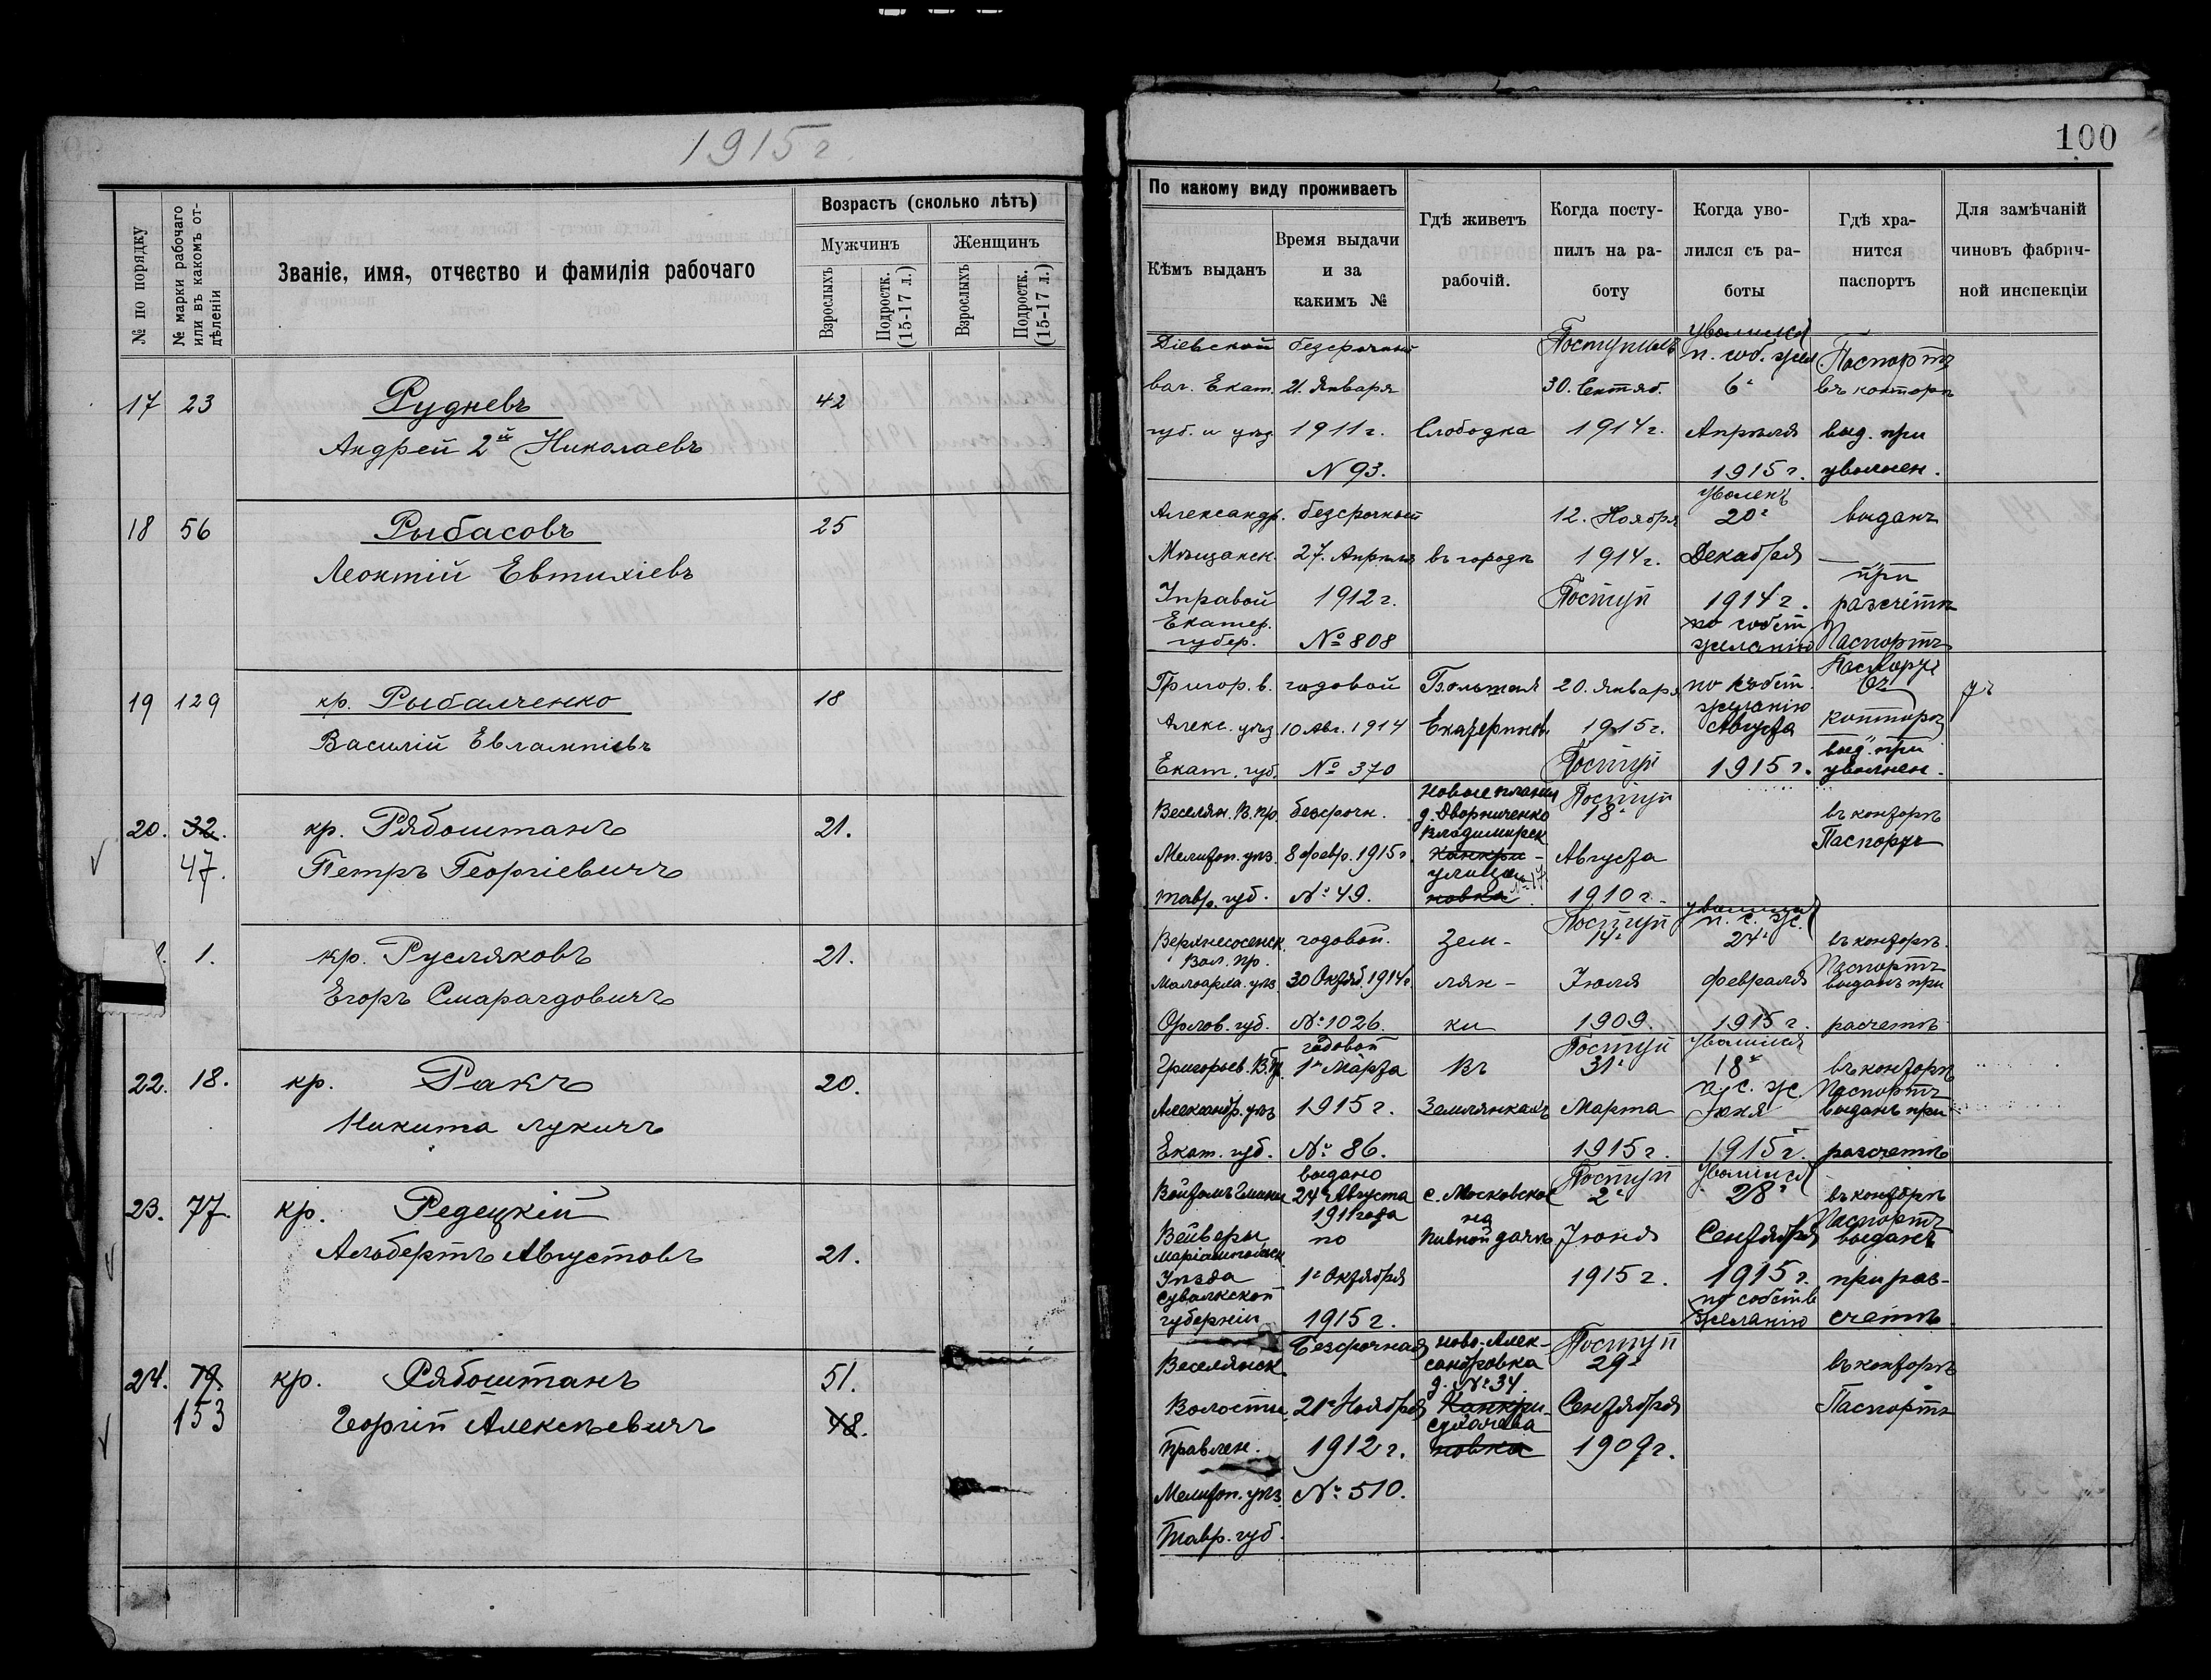 1915 г.
№ по порядку
№ марки рабочаго или въ какомъ отдѣленіи
Званіе, имя, отчество и фамилія рабочаго
Возрастъ (сколько лѣтъ)
Мужчинъ
Женщинъ
Взрослыхъ
Подростк. (15-17 л.)
Взрослыхъ
Подростк. (15-17 л.)
17 23 Рудневъ 42
Андрей 2й Николаевъ
18 56 Рыбасовъ 25
Леонтій Евтихіевъ
19 129 кр. Рыбалченко 18
Василій Евлампіевъ
20. 32. кр. Рябоштанъ 21.
47. Петръ Георгіевичъ
1. кр. Русляковъ 21.
Егоръ Смарагдовичъ
22. 18. кр. Ракъ 20.
Никита Лукичъ
23. 77. кр. Редецкій
Альбертъ Августовъ 21.
24. 79. кр. Рябоштанъ 51.
153 Георгій Алексѣевичъ 48.
100
По какому виду проживаетъ
Кѣмъ выданъ
Время выдачи
и за
какимъ №
Гдѣ живетъ
рабочій.
Когда посту-
пилъ на ра-
боту
Когда уво-
лился съ ра-
боты
Гдѣ хра-
нится
паспортъ
Для замѣчаній
чиновъ фабрич-
ной инспекціи
Діевской безсрочный Поступилъ уволился п. соб. жел Паспортъ
вол. Екат. 21. Января 30. Сентяб. 6г въ конторѣ
губ. и уѣзд 1911 г. Слободка 1914 г. Апрѣля выд. при
№ 93. 1915 г. уволнен.
Александр. безсрочный 12. Ноября уволенъ 20г выданъ
Мѣщанск. 27. Апрѣля въ городѣ 1914 г. Декабря при
Управой 1912 г. Поступ 1914 г. разсчётѣ
Екатер. губер. № 808 по собст желанію Паспортъ
Григор. в. годовой Большая 20. Января по собст. желанію Паспорт
Алекс. уѣзд 10 Авг. 1914 Екатеринов. 1915 г. Августа конторѣ
Екат. губ. № 370 Поступ 1915 г. выд. при уволнен.
Веселян. В. пр безсрочн. Новые планы д. Дворниченко Поступ 18г въ конторѣ
Мелитоп. уѣз. 8 февр. 1915 г. Владимирск Канкри- Августа Паспортъ
Тавр. губ. № 49. улица № 17. новка 1910 г.
Верхнесосенск. годовой. Зем- Поступ 14г уволился п. с. ж. 24г въ конторѣ.
Вол. пр.
Малоарха. уѣз. 30 Октяб. 1914 г. лян- Іюля февраля Паспортъ выданъ при
Орлов. губ. № 1026. ки 1909. 1915 г. расчетѣ
Григорьев. В. пр. годовой 1г Марта Въ Поступ 31г уволился 18г въ конторѣ
Александр. уѣз 1915 г. Землянкахъ Марта п. с. ж. Іюня Паспортъ выданъ при
Екат. губ. № 86. 1915 г. 1915 г. разсчетѣ
Войтомъ Гмины выдано 24г Августа с. Московское Поступ 2г Уволился 28г въ конторѣ
Вейверы 1911 года по на Пивной дачѣ Іюня Сентября Паспортъ выданъ
Маріампольск
Уѣзда 1г Октября 1915 г. 1915 г. при раз-
Сувалкской
губерніи 1915 г. по собств желанію счетѣ.
Веселянск. Безсрочная Ново-Алек-
сандровка Поступ 29г въ конторѣ
д. № 34.
Волости 21г Ноября Канкри- Сентября Паспортъ
Правлен. 1912 г. новка 1909 г.
Мелитоп. уѣз. № 510.
Тавр. губ.